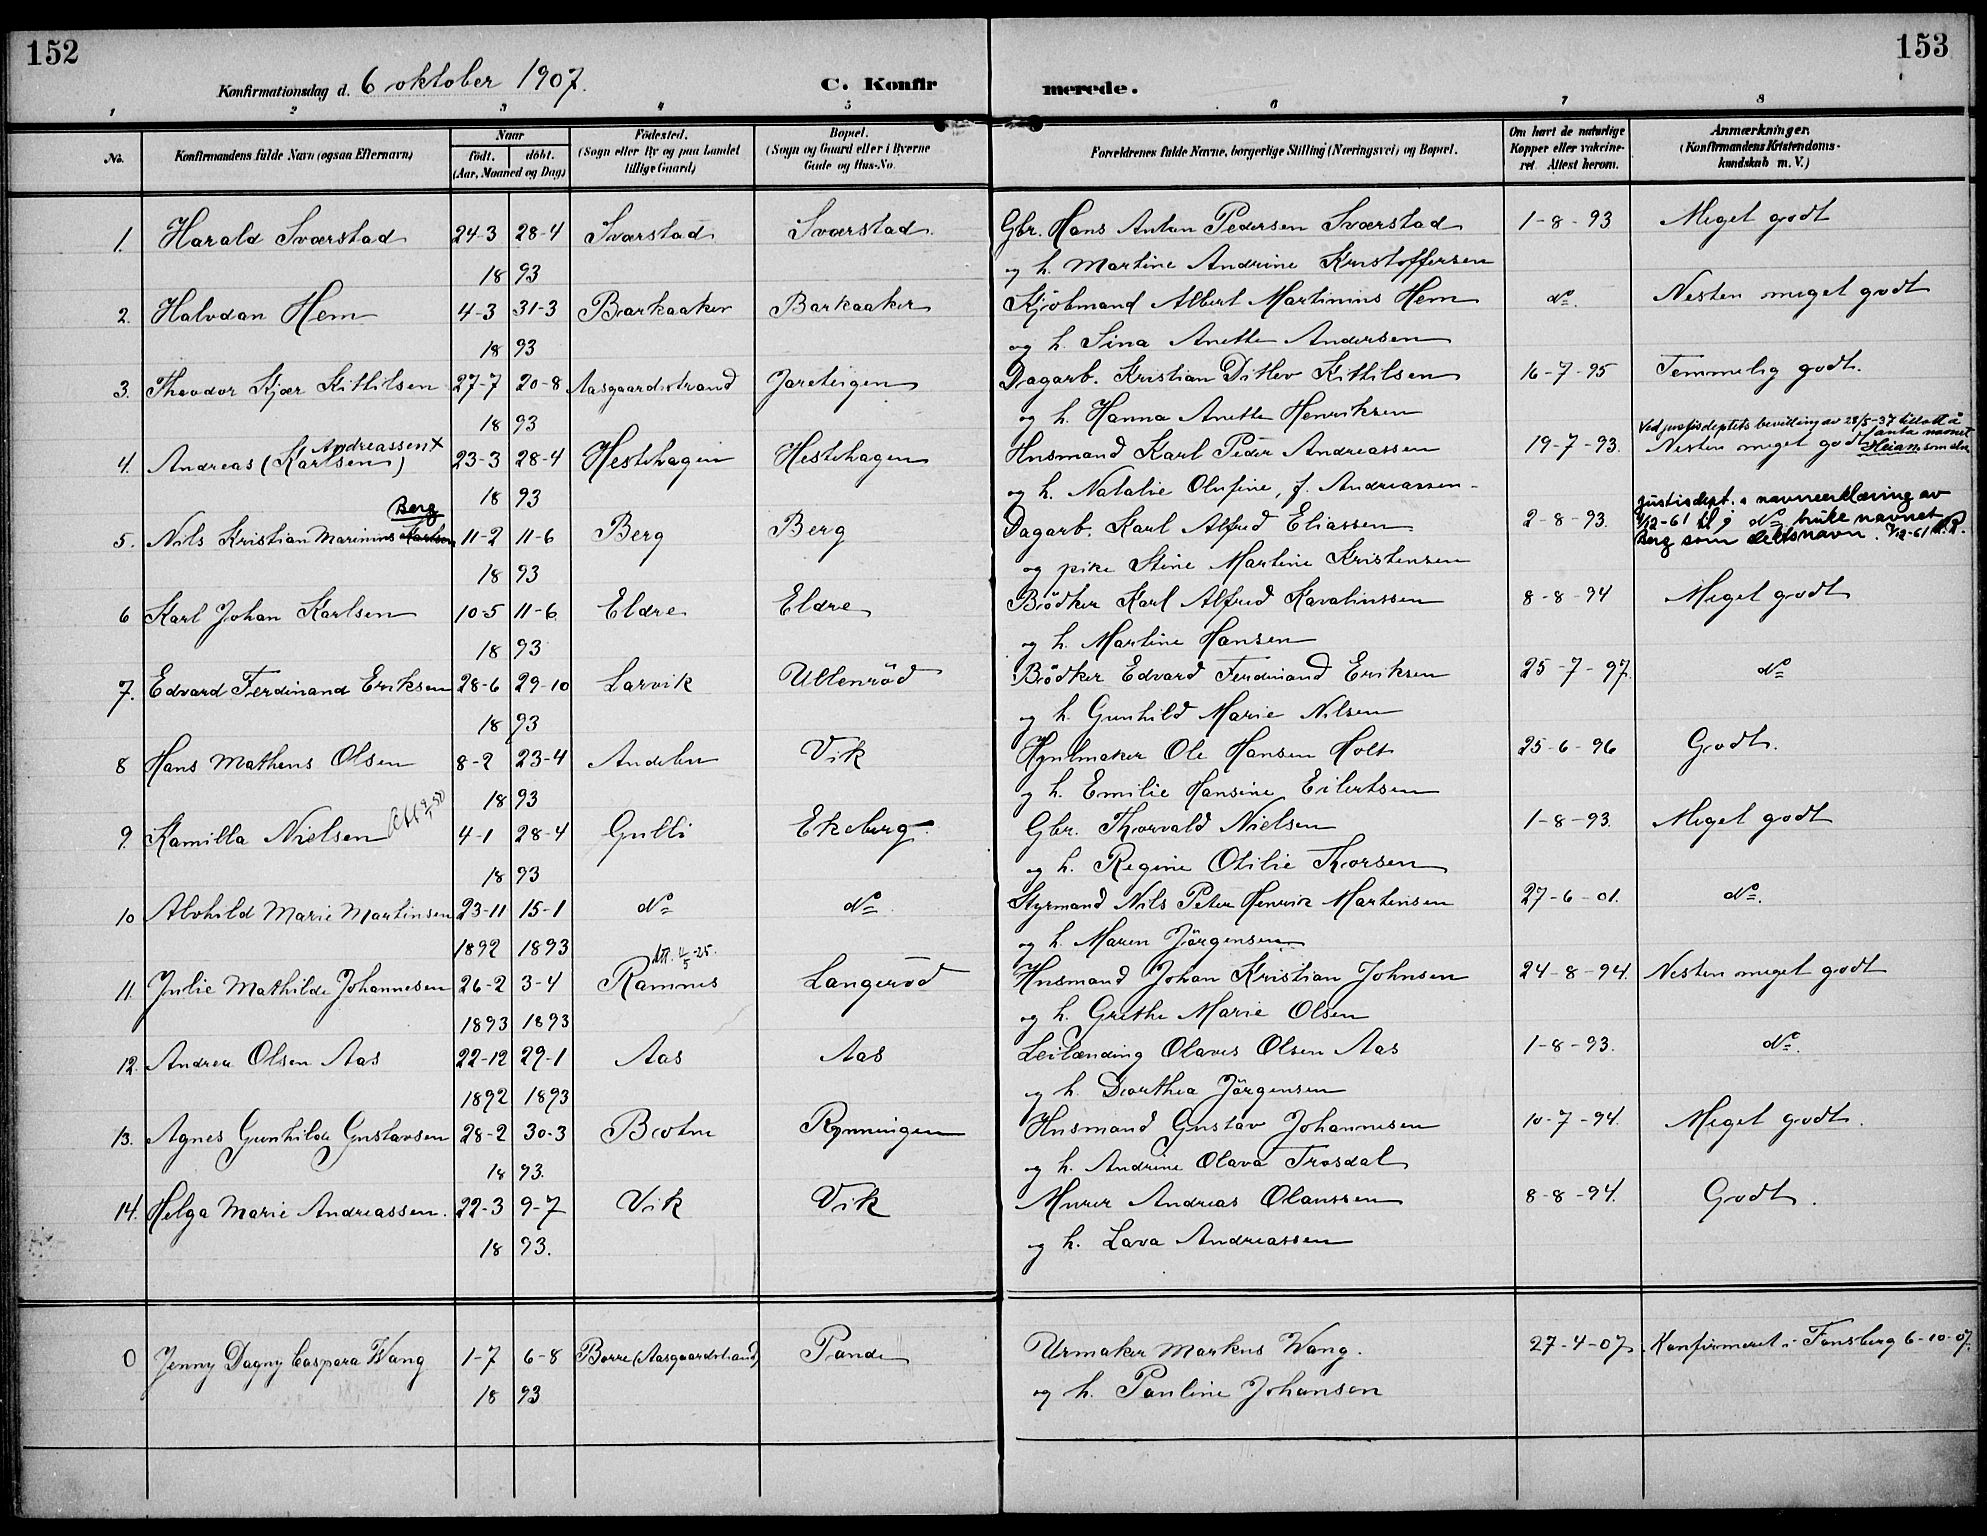 152
153
Konfirmationsdag d. 6 oktober 1907.
C. Konfirmerede.
1 2 3 4 5 6 7 8
No.
Konfirmandens fulde Navn (ogsaa Efternavn)
Naar
født. døbt.
(Aar, Maaned og Dag)
Fødested.
(Sogn eller By og paa Landet
tillige Gaard)
Bopæl.
(Sogn og Gaard eller i Byerne
Gade og Hus-No.
Forældrenes fulde Navne, borgerlige Stilling (Næringsvei) og Bopæl.
Om havt de naturlige
Kopper eller vakcine-
ret. Attest herom.
Anmærkninger.
(Konfirmandens Kristendoms-
kundskab m. V.)
1. Harald Sværstad 24-3 28-4 Sværstad Sværstad Gbr. Hans Anton Pedersen Sværstad 1-8-93 Meget godt
18 93 og h. Martine Andrine Kristoffersen
2. Halvdan Hem 4-3 31-3 Barkaaker Barkaaker Kjøbmand Albert Martinius Hem do. Nesten meget godt
18 93 og h. Lina Anette Andersen
3. Theodor Kjær Kittilsen 27-7 20-8 Aasgaardstrand Jareteigen Dagarb. Kristian Ditlev Kittilsen 16-7-95 Temmelig godt.
18 93 og h. Hanna Anette Henriksen
Ved justisdeptets bevilling av 28/5-37 tillatt å
anta navnet
Andreassen x
4. Andreas (Karlsen) 23-3 28-4 Hestehagen Hestehagen Husmand Karl Peder Andreassen 19-7-93. Nesten meget godt Heian som
18 93 og h. Natalie Olufine, f. Andreassen
Berg
5. Nils Kristian Marinius Karlsen 11-2 11-6 Berg Berg Dagarb. Karl Alfred Eliassen 2-8-93.
Justisdept.s navneerklæring av
12-61 til å do. bruke navnet
Berg som slektsnavn.
18 93 og pike Stine Martine Kristensen
6 Karl Johan Karlsen 10-5 11-6 Eldre Eldre Bødker Karl Alfred Kavalinssen 8-8-94 Meget godt
18 93 og h. Martine Hansen
7. Edvard Ferdinand Eriksen 28-6 29-10 Larvik Ullenrød Bødker Edvard Ferdinand Eriksen 25-7-97. do.
18 93 og h. Gunhild Marie Nilsen
8 Hans Matheus Olsen 8-2 23-4 Andebu Vik Hjulmaker Ole Hansen Holt 25-6-96 Godt.
18 93 og h. Emilie Hansine Eilertsen
9. Kamilla Nielsen 4-1 28-4 Gulli Ekeberg Gbr. Thorvald Nielsen 1-8-93. Meget godt
18 93 og h. Regine Otilie Thorsen
10 Alvhild Marie Martinsen 23-11 15-1 do. do. Styrmand Nils Peter Henrik Martinsen 27-6-01. do.
1892 1893 og h. Maren Jørgensen
Att. 4/5-25.
11. Julie Mathilde Johannesen 26-2 3-4 Ramnes Langerød Husmand Johan Kristian Johnsen 24-8-94. Nesten meget godt
1893 1893 og h. Grethe Marie Olsen
12. Andrea Olsen Aas 22-12 29-1 Aas Aas Leilænding Olaves Olsen Aas 1-8-93. do.
1892 1893 og h. Dorthea Jørgensen
13. Agnes Gunhilde Gustavsen 28-2 30-3 Botne Rønningen Husmand Gustav Johannesen 10-7-94. Meget godt.
18 93. og h. Andrine Olava Trosdal
14. Helga Marie Andreassen. 22-3 9-7 Vik Vik Murer Andreas Olaussen 8-8-94. Godt.
18 93. og h. Lava Andreassen
0 Jenny Dagny Caspara Wang 1-7 6-8 Borre (Aasgaardstrand) Rande Urmaker Markus Wang. 27-4-07. Konfirmeret i Tønsberg 6-10-07.
18 93 og h. Pauline Johansen